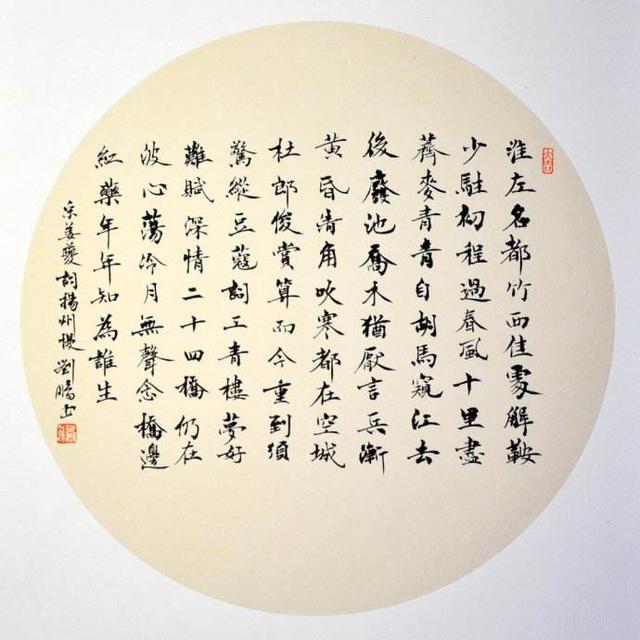 淮左名都竹西佳處解鞍
少駐初程過春風十里盡
薺麥青青自胡馬窺江去
後廢池喬木猶厭言兵漸
黃昏清角吹寒都在空城
杜郎俊賞算而今重到須
驚縱豆蔻詞工青樓夢好
難賦深情二十四橋仍在
波心蕩冷月無聲念橋邊
紅藥年年知為誰生
宋姜夔詞揚州慢 劉